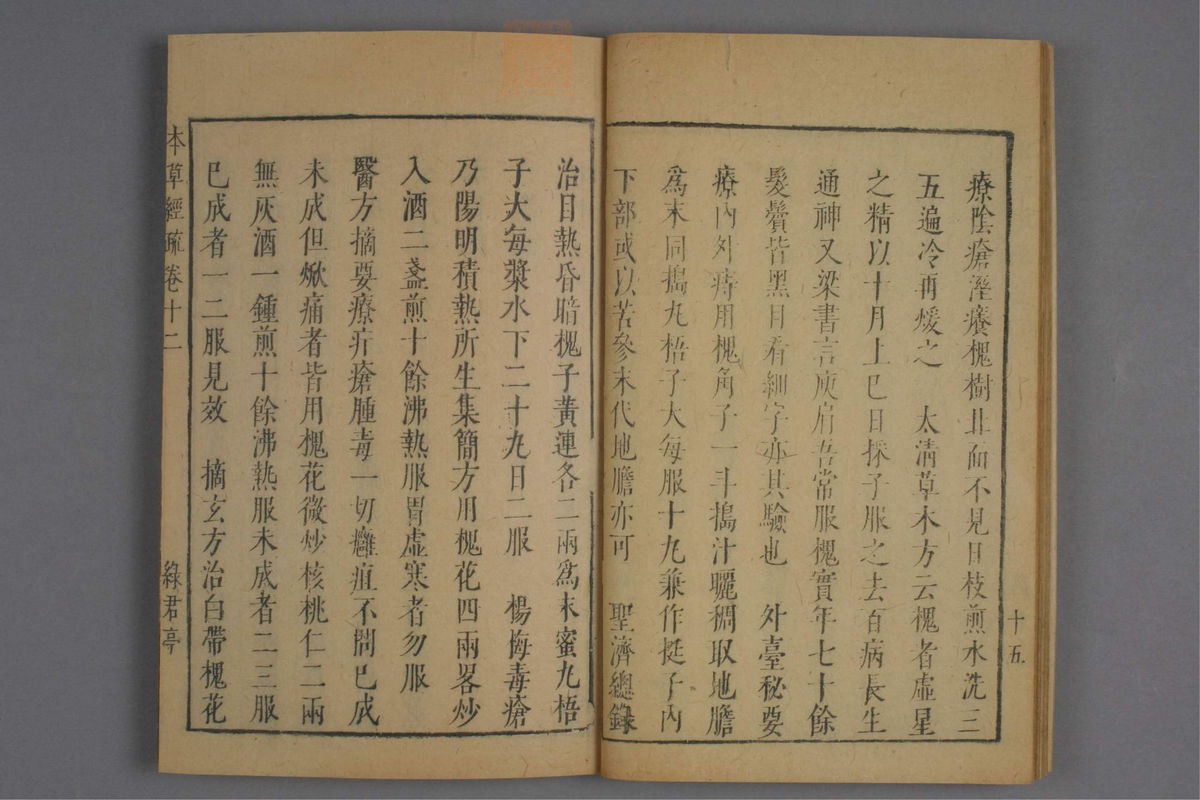 十五
療陰瘡溼癢槐樹北面不見日枝煎水洗三
五遍冷再煖之　太清草木方云槐者虛星
之精以十月上巳日採子服之去百病長生
通神又梁書言庾肩吾常服槐實年七十餘
髮鬢皆黑目看細字亦其驗也　外臺秘要
療內外痔用槐角子一斗搗汁曬稠取地膽
爲末同搗丸梧子大每服十丸兼作挺子內
下部或以苦參末代地膽亦可　聖濟總錄
治目熱昏暗槐子黃連各二兩爲末蜜丸梧
子大每漿水下二十丸日二服　楊梅毒瘡
乃陽明積熱所生集簡方用槐花四兩畧炒
入酒二盞煎十餘沸熱服胃虛寒者勿服
醫方摘要療疔瘡腫毒一切癰疽不問已成
未成但焮痛者皆用槐花微炒核桃仁二兩
無灰酒一鍾煎十餘沸熱服未成者二三服
已成者一二服見效　摘玄方治白帶槐花
本草經疏卷十二
綠君亭